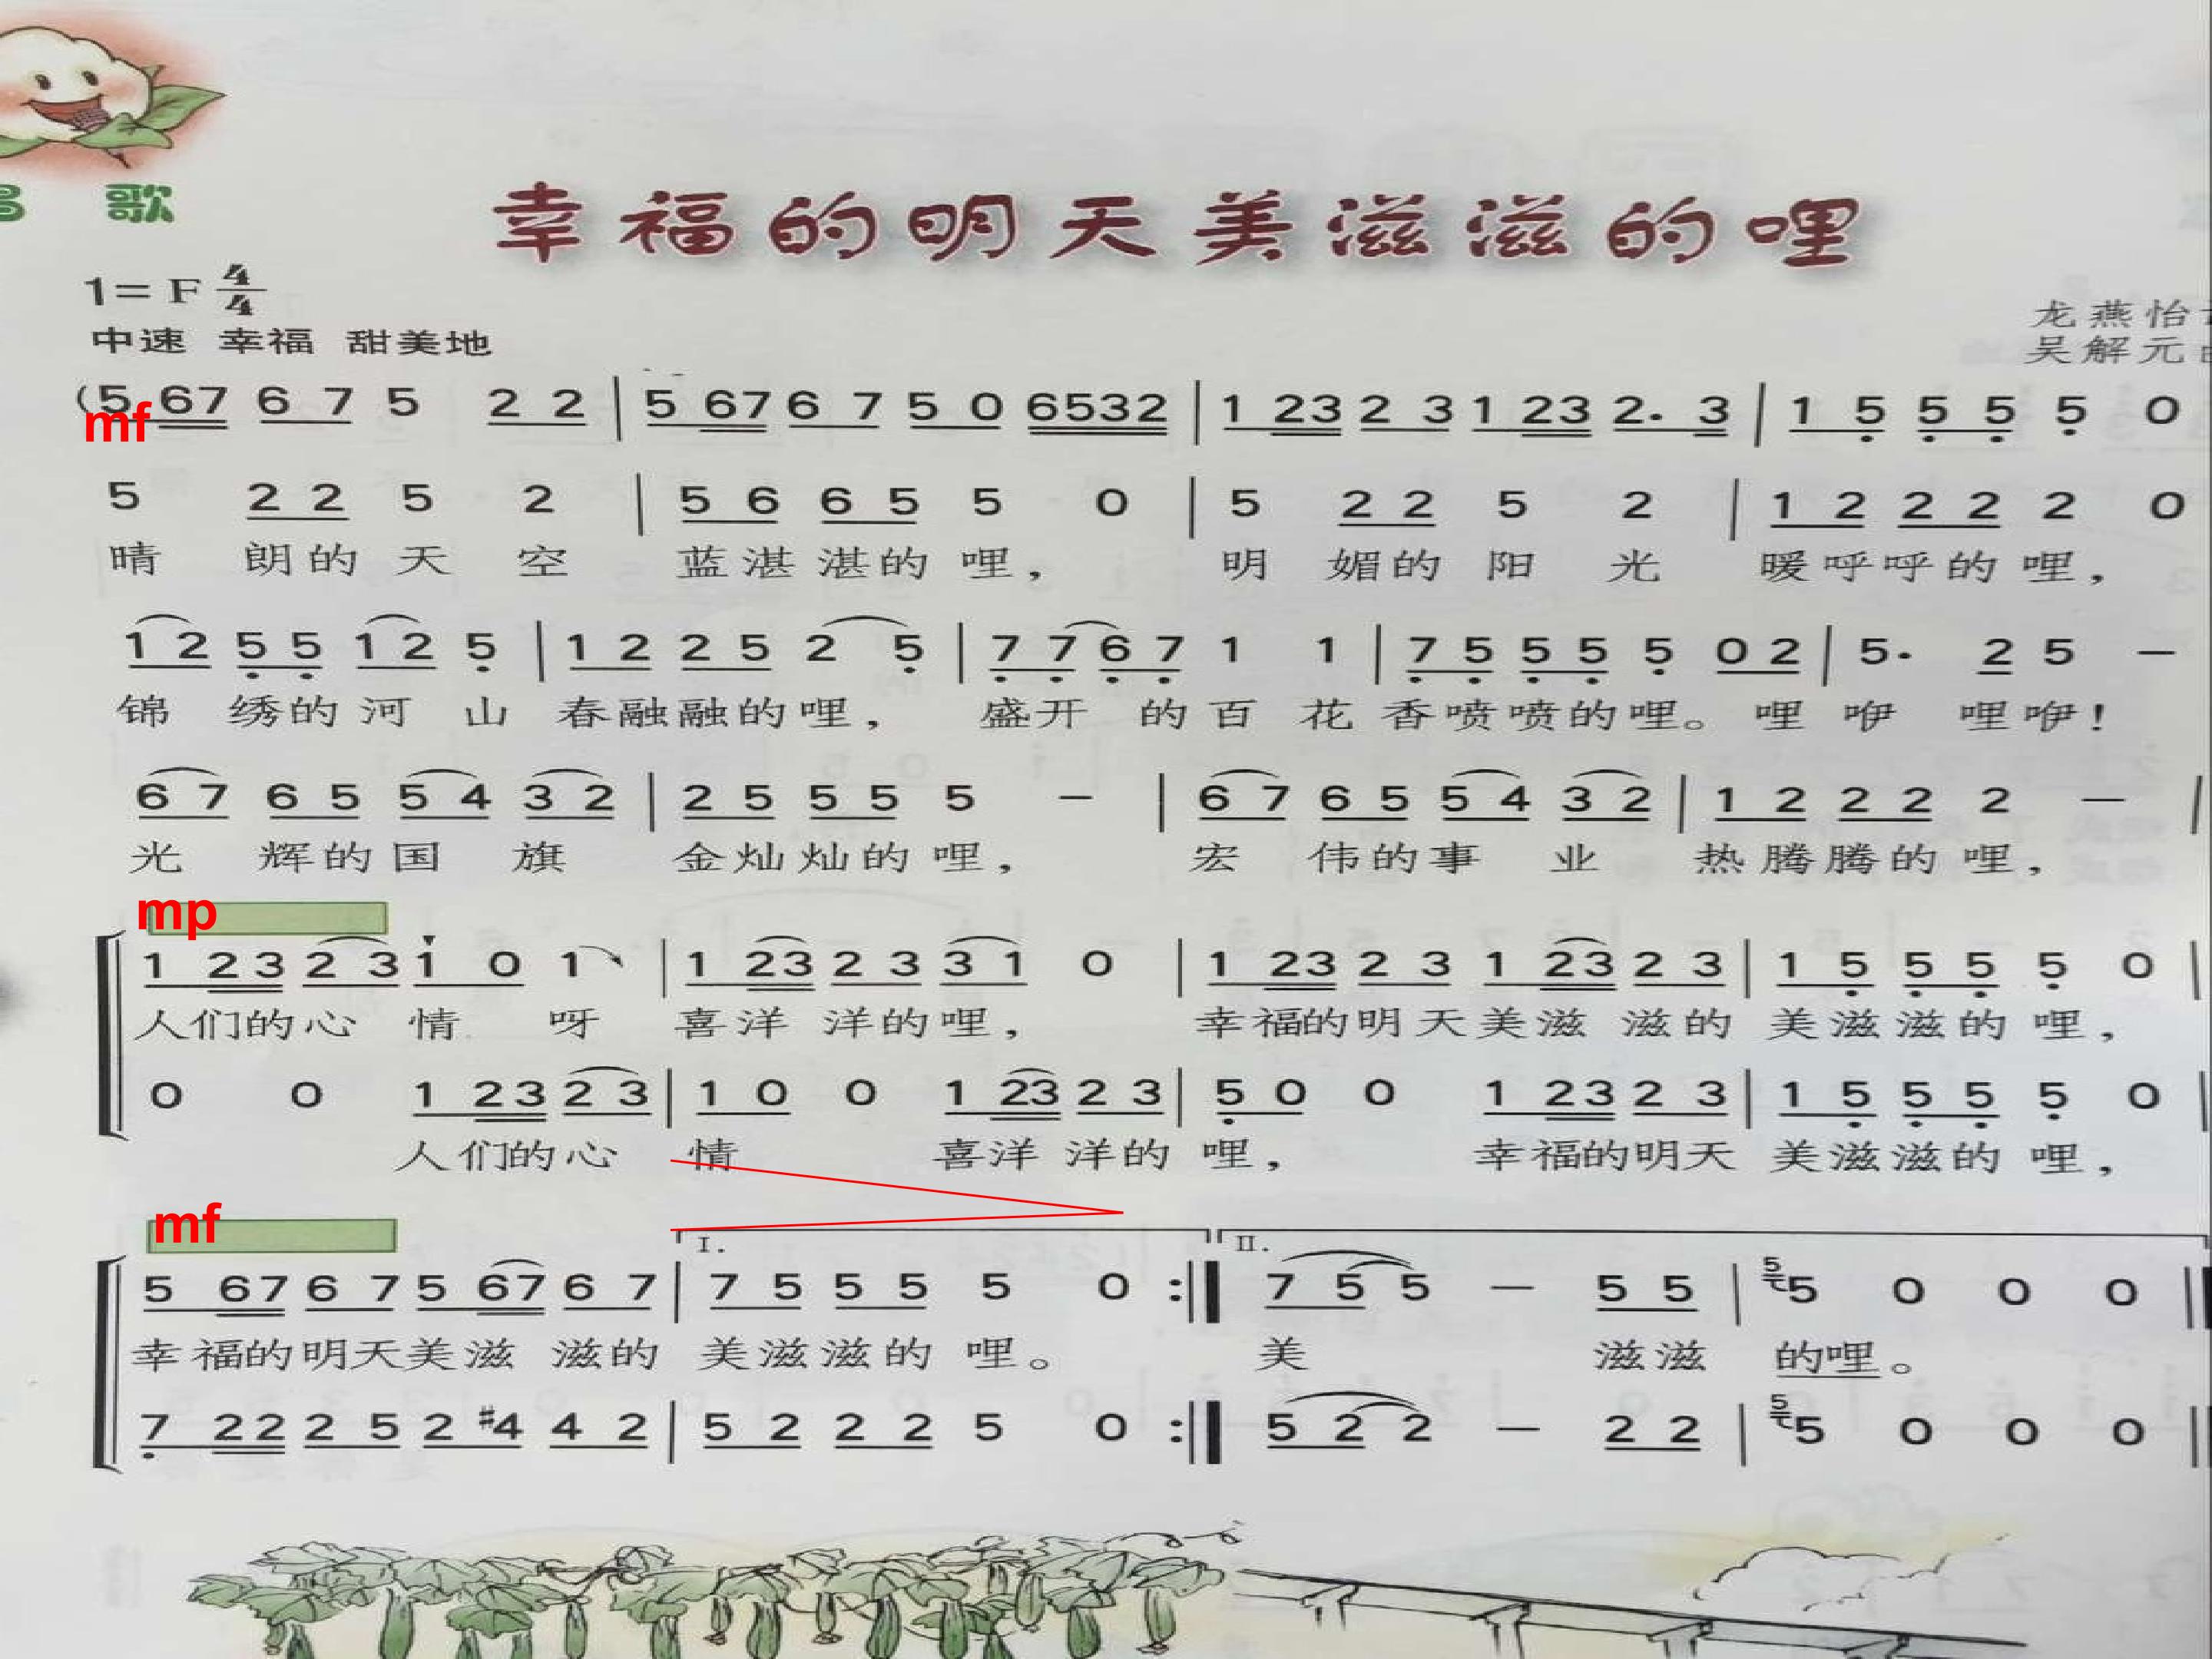 歌
幸福的明天美滋滋的哩
1=F 4/4
中速 幸福 甜美地
龙燕怡
吴解元
mf
(5 67 6 7 5 2 2 | 5 67 6 7 5 0 6532 | 1 23 2 3 1 23 2. 3 | 1 5 5 5 5 0
5 2 2 5 2 | 5 6 6 5 5 0 | 5 2 2 5 2 | 1 2 2 2 2 0
晴 朗的 天 空 蓝湛湛的 哩, 明 媚的 阳 光 暖呼呼的哩,
1 2 5 5 1 2 5 | 1 2 2 5 2 5 | 7 7 6 7 1 1 | 7 5 5 5 5 0 2 | 5. 2 5 —
锦 绣的 河 山 春融融的哩, 盛开 的百 花 香喷喷的哩。 哩 咿 哩咿!
6 7 6 5 5 4 3 2 | 2 5 5 5 5 — | 6 7 6 5 5 4 3 2 | 1 2 2 2 2 — |
光 辉的国 旗 金灿灿的 哩, 宏 伟的事 业 热腾腾的 哩,
mp
1 23 2 3 1 0 1 | 1 23 2 3 3 1 0 | 1 23 2 3 1 23 2 3 | 1 5 5 5 5 0 |
人们的心 情 呀 喜洋 洋的哩, 幸福的明天美滋 滋的 美滋滋的 哩,
0 0 1 23 2 3 | 1 0 0 1 23 2 3 | 5 0 0 1 23 2 3 | 1 5 5 5 5 0 |
人们的心 情 喜洋 洋的 哩, 幸福的明天 美滋滋的 哩,
mf
I. II.
5 67 6 7 5 67 6 7 | 7 5 5 5 5 0 :‖ 7 5 5 — 5 5 | 5 5 0 0 0 ‖
幸福的明天美滋 滋的 美滋滋的 哩。 美 滋滋 的哩。
7 22 2 5 2 #4 4 2 | 5 2 2 2 5 0 :‖ 5 2 2 — 2 2 | 5 5 0 0 0 ‖